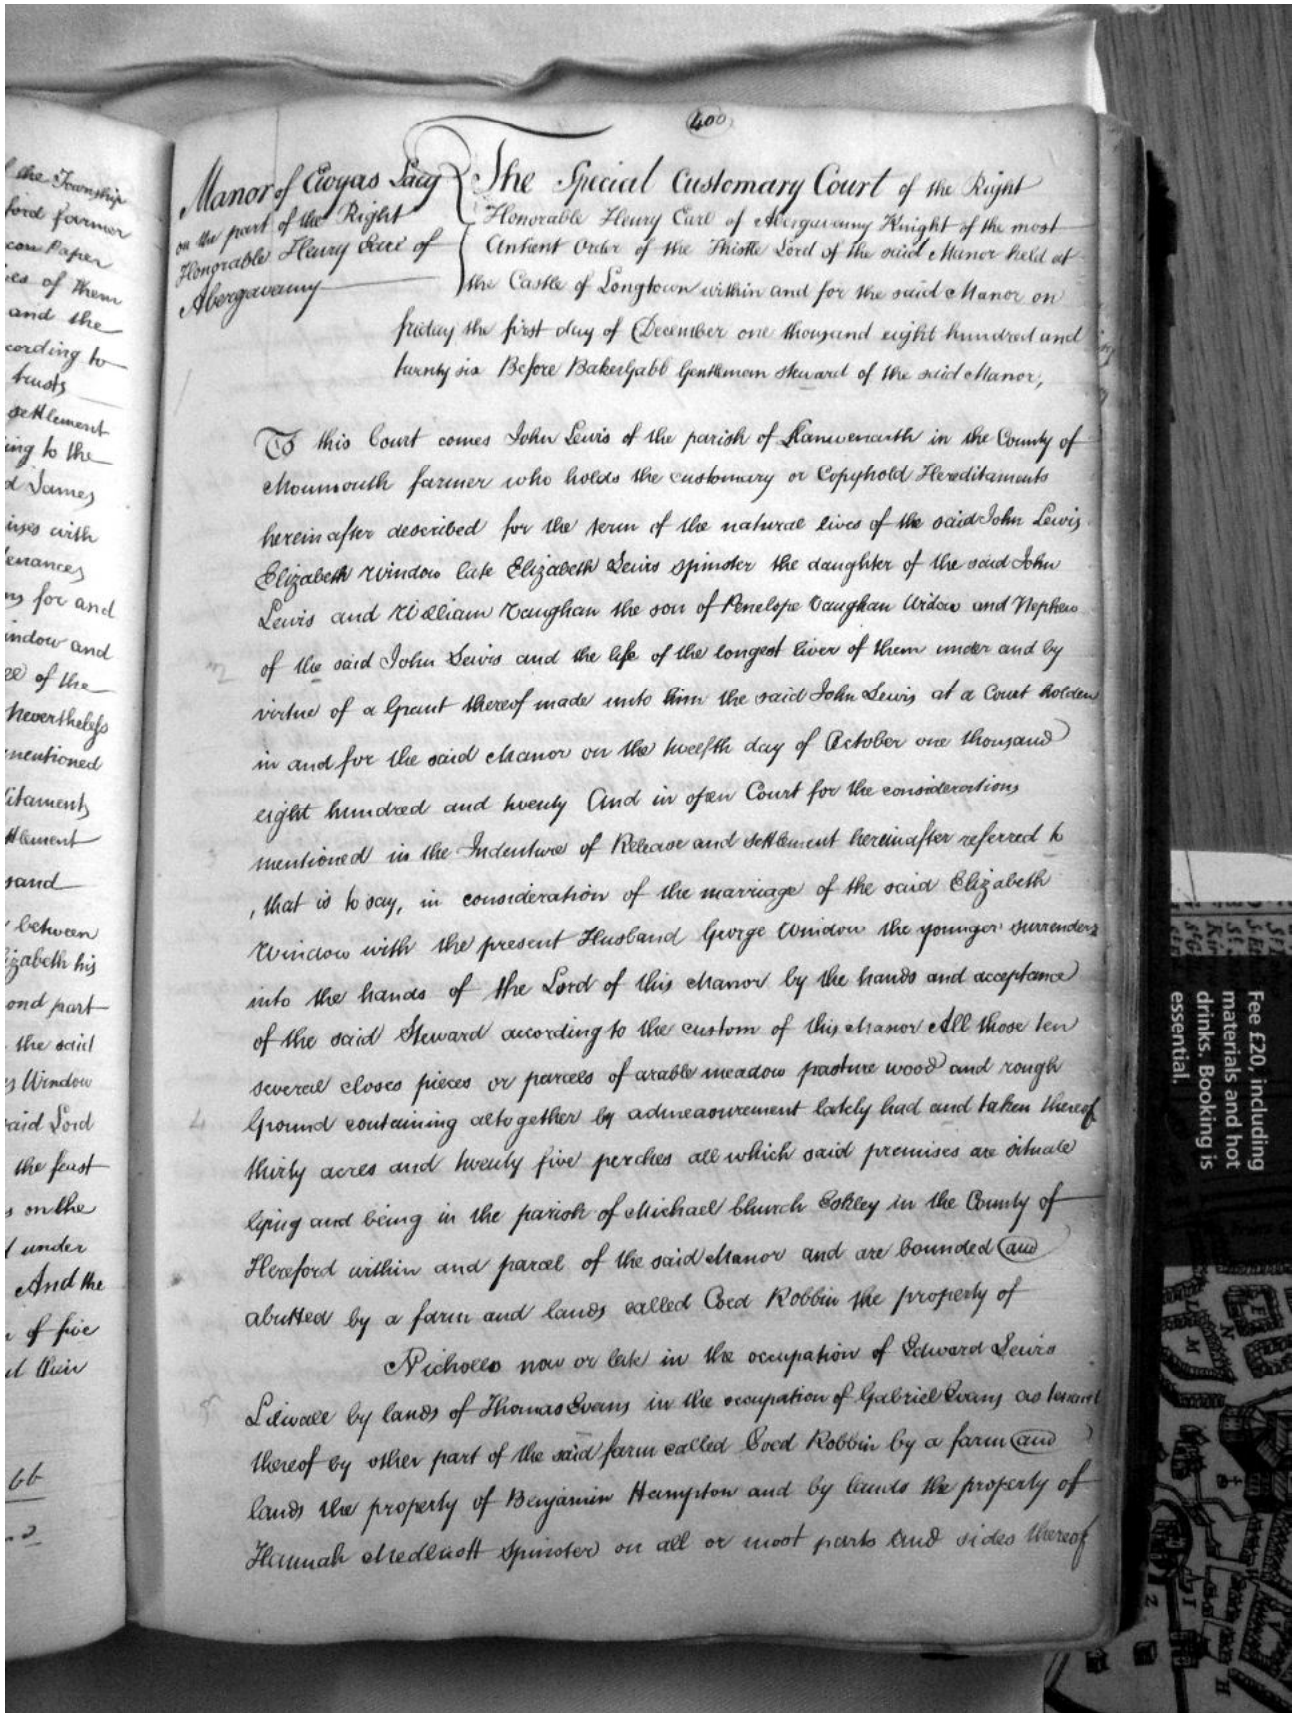 the Township
ford farmer
con Paper
ies of them
and the
cording to
trusts
settlement
ing to the
d James
ises with
tenances
ns for and
indow and
ee of the
Nevertheless
mentioned
itaments
ttlement
sand
between
izabeth his
ond part
the said
es Window
said Lord
the feast
s on the
d under
And the
r of five
their
bb
400
Manor of Ewyas Lacy
on the part of the Right
Honorable Henry Earl of
Abergavenny
The Special Customary Court of the Right
Honorable Henry Earl of Abergavenny Knight of the most
Antient Order of the Thistle Lord of the said Manor held at
the Castle of Longtown within and for the said Manor on
friday the first day of December one thousand eight hundred and
twenty six Before Baker Gabb Gentleman Steward of the said Manor,
To this Court comes John Lewis of the parish of Lanwenarth in the County of
Monmouth farmer who holds the customary or Copyhold Hereditaments
hereinafter described for the term of the natural lives of the said John Lewis
Elizabeth Window late Elizabeth Lewis spinster the daughter of the said John
Lewis and William Vaughan the son of Penelope Vaughan Widow and Nephew
of the said John Lewis and the life of the longest liver of them under and by
virtue of a Grant thereof made unto him the said John Lewis at a Court holden
in and for the said Manor on the twelfth day of October one thousand
eight hundred and twenty And in open Court for the considerations
mentioned in the Indenture of Release and settlement hereinafter referred to
, that is to say, in consideration of the marriage of the said Elizabeth
Window with the present Husband George Window the younger surrenders
into the hands of the Lord of this Manor by the hands and acceptance
of the said Steward according to the custom of this Manor All those ten
several closes pieces or parcels of arable meadow pasture wood and rough
Ground containing altogether by admeasurement lately had and taken thereof
thirty acres and twenty five perches all which said premises are situate
lying and being in the parish of Michael Church Eskley in the County of
Hereford within and parcel of the said Manor and are bounded and
abutted by a farm and lands called Coed Robbin the property of
Nicholls now or late in the occupation of Edward Lewis
Lilwall by lands of Thomas Evans in the occupation of Gabriel Evans as tenant
thereof by other part of the said farm called Coed Robbin by a farm and
lands the property of Benjamin Hampton and by lands the property of
Hannah Medlicott Spinster on all or most parts and sides thereof
Fee £20, including
materials and hot
drinks. Booking is
essential.